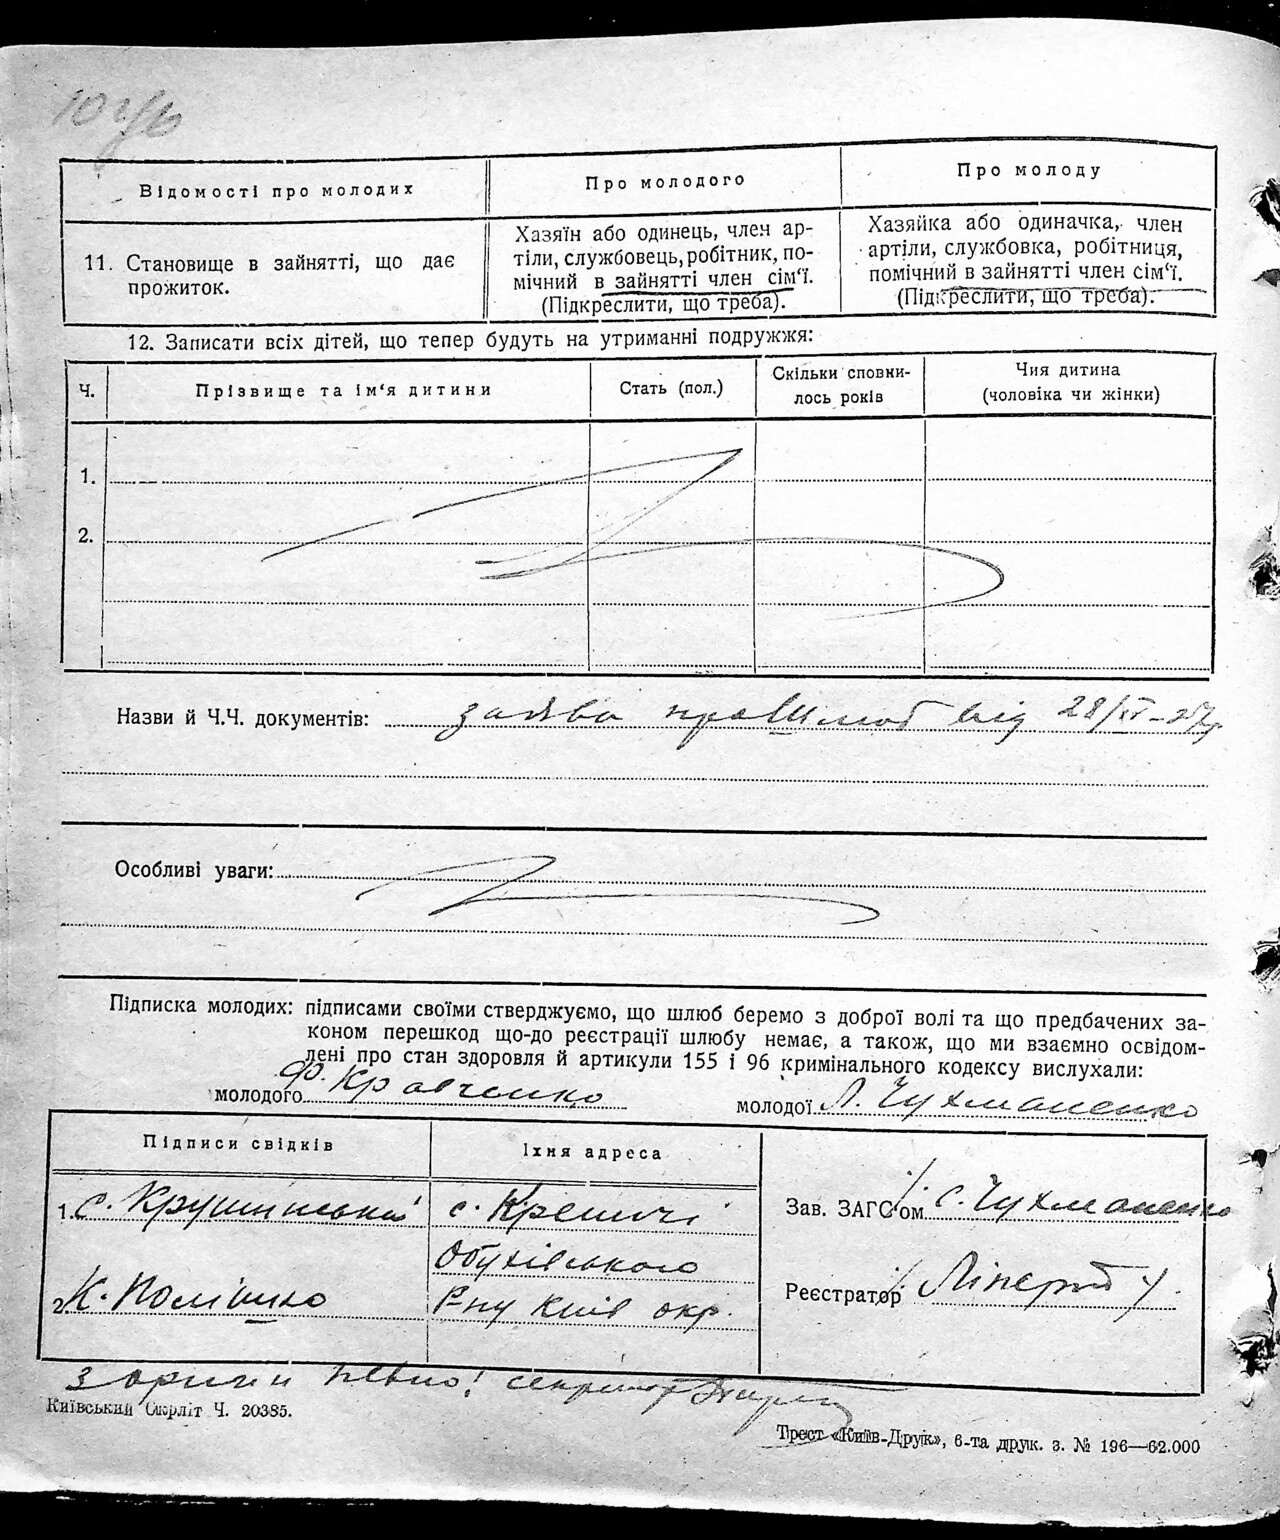 Відомості про молодих
Про молодого
Про молоду
11. Становище в зайнятті, що дає
прожиток.
Хазяїн або одинець, член ар-
тіли, службовець, робітник, по-
мічний в зайнятті член сім'ї.
(Підкреслити, що треба).
Хазяйка або одиначка, член
артіли, службовка, робітниця,
помічний в зайнятті член сім'ї.
(Підкреслити, що треба).
12. Записати всіх дітей, що тепер будуть на утриманні подружжя:
Ч.
Прізвище та ім'я дитини
Стать (пол.)
Скільки сповни-
лось років
Чия дитина
(чоловіка чи жінки)
1.
2.
Назви й Ч.Ч. документів: заява про шлюб від 28/
Особливі уваги:
Підписка молодих: підписами своїми стверджуємо, що шлюб беремо з доброї волі та що предбачених за-
коном перешкод що-до реєстрації шлюбу немає, а також, що ми взаємно освідом-
лені про стан здоровля й артикули 155 і 96 кримінального кодексу вислухали:
молодого Ф. Кравченко
молодої Л. Чухманенко
Підписи свідків
Їхня адреса
1. С. Крушинський
с. Креничі
Обухівського
2. К. Полішко
Р-ну Київ окр.
Зав. ЗАГС'ом С. Чухманенко
Реєстратор
З оригін певно! секретар
Київський Окрліт Ч. 20385.
Трест «Київ-Друк», 6-та друк. з. № 196—62.000